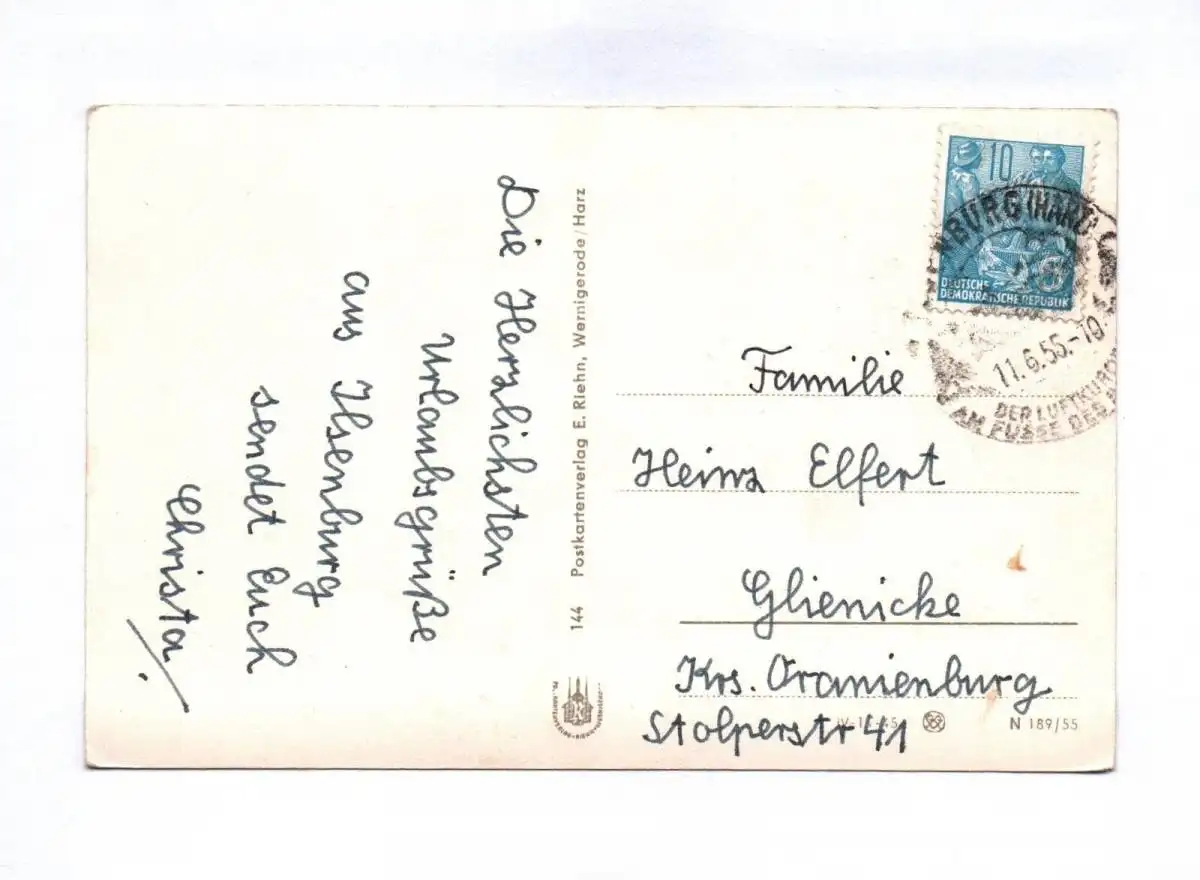 Die Herzlichsten
Urlaubsgrüße
aus Ilsenburg
sendet Euch
Christa.
144 Postkartenverlag E. Riehn, Wernigerode/Harz
10
DEUTSCHE
DEMOKRATISCHE REPUBLIK
NBURG (HARZ)
11.6.55.-10
DER LUFTKURO
AM FUSSE DES
Familie
Heinz Elfert
Glienicke
Krs. Oranienburg
Stolperstr 41
N 189/55